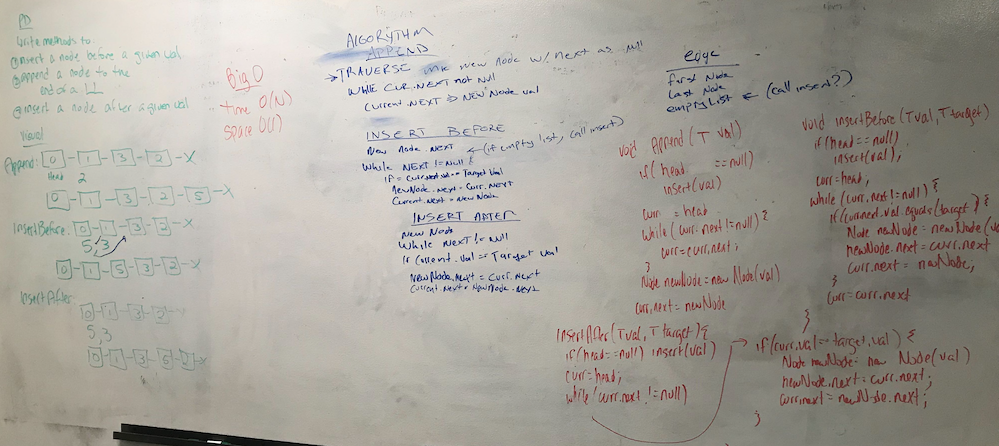 PD
Write methods to
① insert a node before a given val
② append a node to the
end of a LL
③ insert a node after a given val
Visual
Append: 0 - 1 - 3 - 2 - X
Head 2
0 - 1 - 3 - 2 - 5 - X
InsertBefore: 0 - 1 - 3 - 2 - X
5,3
0 - 1 - 5 - 3 - 2 - X
InsertAfter
0 - 1 - 3 - 2 - X
5,3
0 - 1 - 3 - 5 - 2 - X
Big O
time O(N)
space O(1)
ALGORYTHM
APPEND
→ TRAVERSE make new node w/ next as null
While CUR.NEXT not Null
Current.NEXT => NEW Node val
INSERT BEFORE
New Node.NEXT ← (if empty list, call insert)
While NEXT != Null {
if = Curr.next.val == Target val
newNode.next = Curr.NEXT
Current.Next = newNode
INSERT AFTER
New Node
While NEXT != Null
If Current.val == Target val
NewNode.next = Curr.next
Current.Next = NewNode.Next
edge
first Node
Last Node
empty List ← (call insert?)
void Append(T val)
if(head == null)
insert(val)
curr = head
while(curr.next != null) {
curr = curr.next;
}
Node newNode = new Node(val)
curr.next = newNode
InsertAfter(T val, T target) {
if(head == null) insert(val)
curr = head;
while(curr.next != null)
if(curr.val == target.val) {
Node newNode = new Node(val)
newNode.next = curr.next;
curr.next = newNode.next;
}
void insertBefore(T val, T target)
if(head == null)
insert(val);
curr = head;
while (curr.next != null) {
if(curr.next.val.equals(target)) {
Node newNode = new Node(v
newNode.next = curr.next
curr.next = newNode;
}
curr = curr.next
}